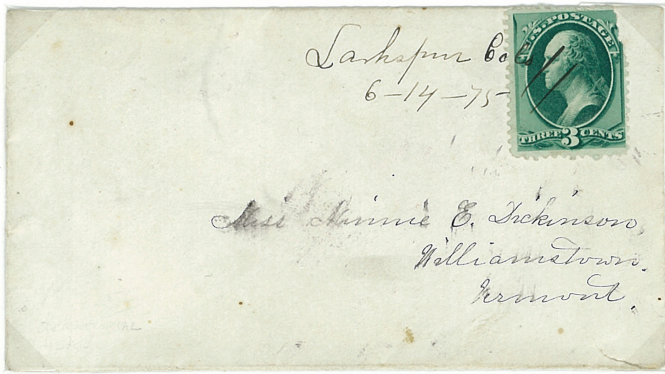 Larkspur Col
6-14-75
U.S. POSTAGE
THREE 3 CENTS
Miss Minnie E. Dickinson
Williamstown.
Vermont.